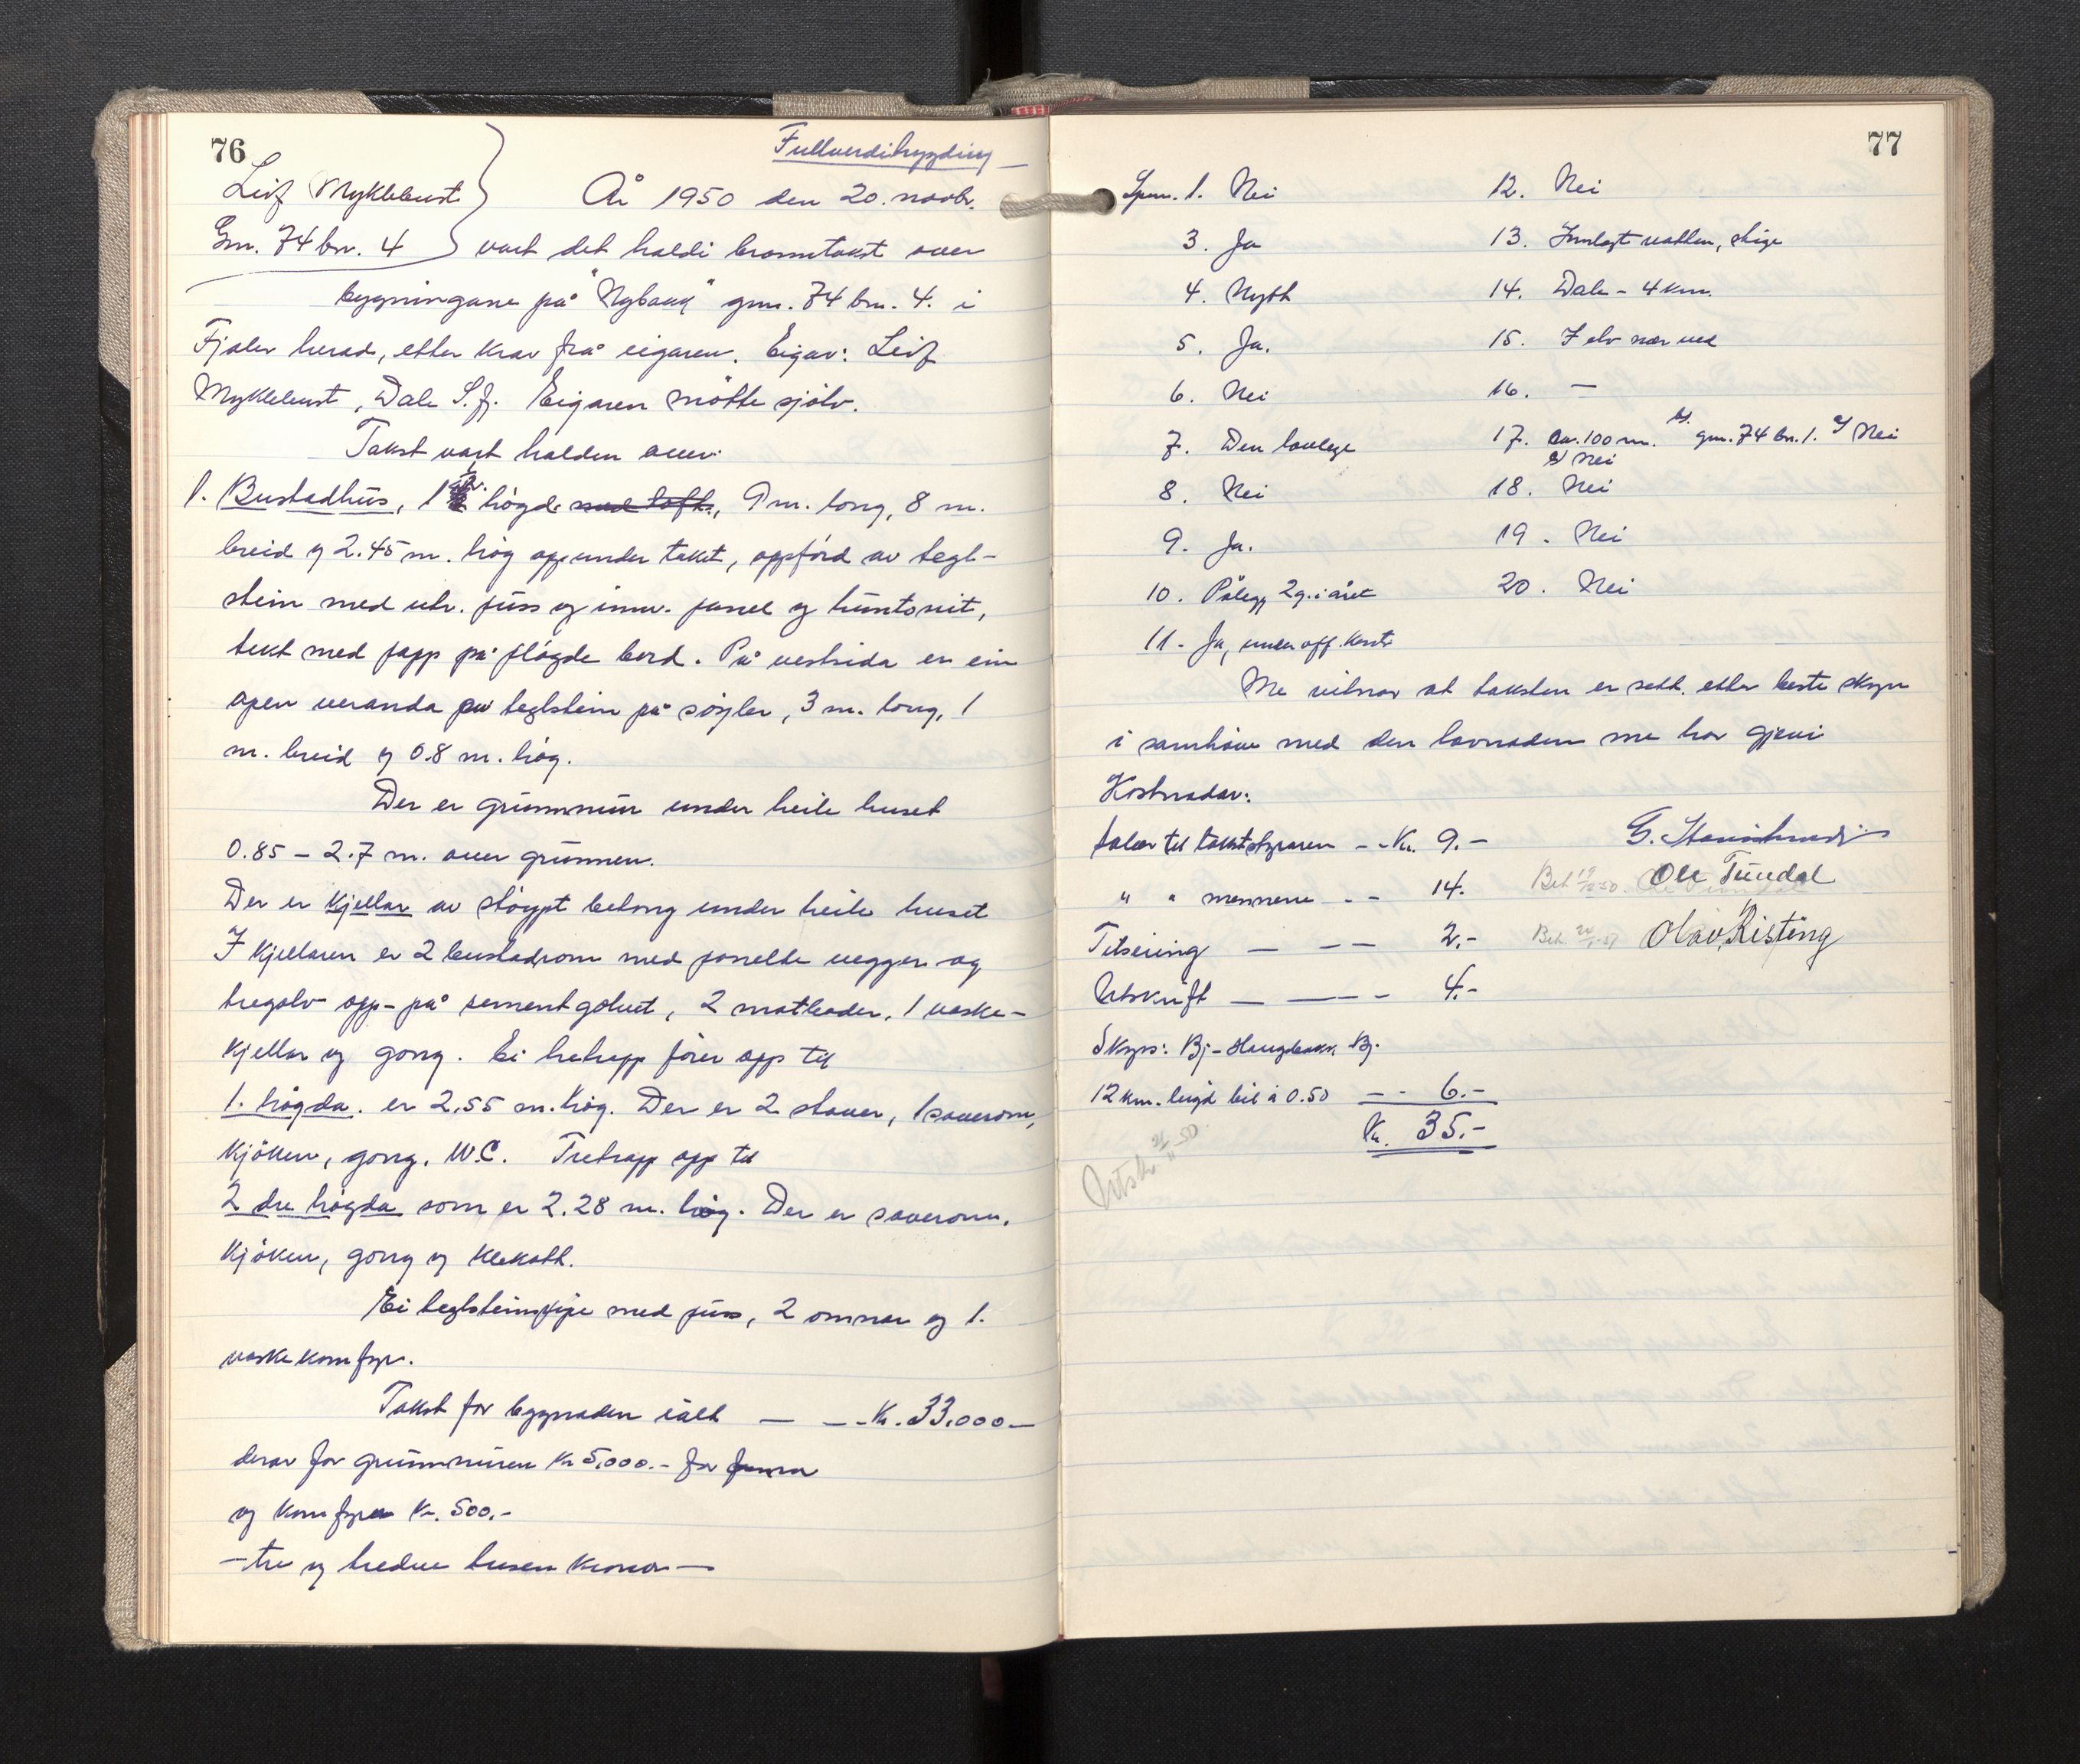 76
Fullverditrygding
Leif Myklebust
Gnr. 74 bnr. 4
År 1950 den 20. novbr.
vart det haldi branntakst over
bygningane på "Nybakk" gnr. 74 bnr. 4. i
Fjaler herad, etter krav frå eigaren. Eigar: Leif
Myklebust, Dale S.fj. Eigaren møtte sjølv.
Takst vart halden over:
1. Bustadhus, 1 høgde med loft., 9 m. long, 8 m.
breid og 2.45 m. høg opp under taket, oppførd av tegl-
stein med utv. puss og innv. panel og huntonit,
tekt med papp på pløgde bord. På vestsida er ein
open veranda av teglstein på søyler, 3 m. long, 1
m. breid og 0.8 m. høg.
Der er grunnmur under heile huset
0.85 - 2.7 m. over grunnen.
Der er kjellar av støypt betong under heile huset
I kjellaren er 2 bustadrom med panelte vegger og
tregolv opp-på sementgolvet, 2 matboder, 1 vaske-
kjellar og gong. Ei tretrapp fører opp til
1. høgda. er 2.55 m. høg. Der er 2 stover, 1 soverom,
kjøken, gong, W.C. Tretrapp opp til
2 dre høgda som er 2.28 m. høg. Der er soverom,
kjøken, gong og klekott.
Ei teglsteinspipe med puss, 2 omnar og 1.
vaskekomfyr.
Takst for bygnaden ialt — — - Kr. 33.000 —
derav for grunnmuren kr 5.000.- for omnar
og komfyrer Kr. 500.-
— tre og tredve tusen kronor —
77
Spm. 1. Nei
3. Ja
4. Nytt
5. Ja.
6. Nei
7. Den lovlege
8. Nei
9. Ja.
10. Pålegg 2 g. i året
11. Ja, under off. kontr
12. Nei
13. Innlagt vatten, stige
14. Dale - 4 km.
15. I elv nær ved
16. —
17. ca. 100 m. gnr. 74 bnr. 1. Nei
Nei
18. Nei
19. Nei
20. Nei
Me vitnar at taksten er sett etter beste skyn
i samhøve med den lovnaden me har gjevi
Kostnadar:
Salær til takststyraren - - Kr. 9.-
" " mennene - - 14.
Ole Tundal
Tilseiing — — — 2.-
Olav Risting
Utskrift — —— - 4.-
Skyss: Bj - Haugbakk Bj.
12 km. leigd bil à 0.50 — - 6.-
Kr. 35.-
Utskr 21/11 50.